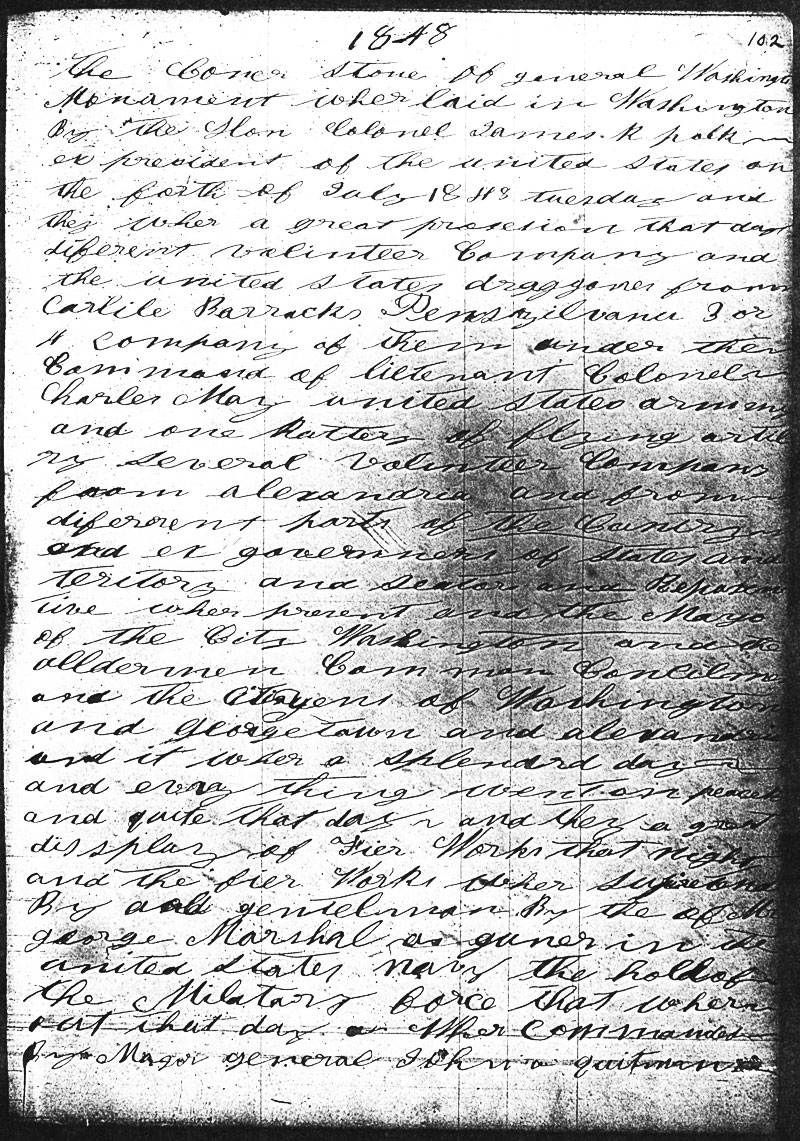 1848
102
the Coner Stone of general Washingt
Monament wher laid in Washington
By the Hon Colonel James K polk
ex president of the united States on
the forth of July 1848 tuesday and
they wher a great prosesion that day
diferent volinteer Company and
the united States draggones from
Carlile Barracks Pensylvanu 3 or
4 company of them under ther
Command of lieutenant Colonel
Charles May united States army
and one Battery of flying artil
ry several volinteer Company
from alexandria and from
diferent parts of the Cuntry
and ex governners of States and
teritory and Seator and Reprsen
tive wher present and the Mayo
of the City Washington and the
alldermen Common Concilm
and the Citizens of Washington
and georgetown and alexandria
and it wher a splendrd day
and evry thing went on peaceb
and quite that day and they a great
dissplay of Fier Works that night
and the fier Works wher Supretend
By a old gentelman By the of Mr
george Marshal a guner in the
united States Navy the hold of
the Militarry force that wher
out that day wher Commanded
By Major general John a quitman